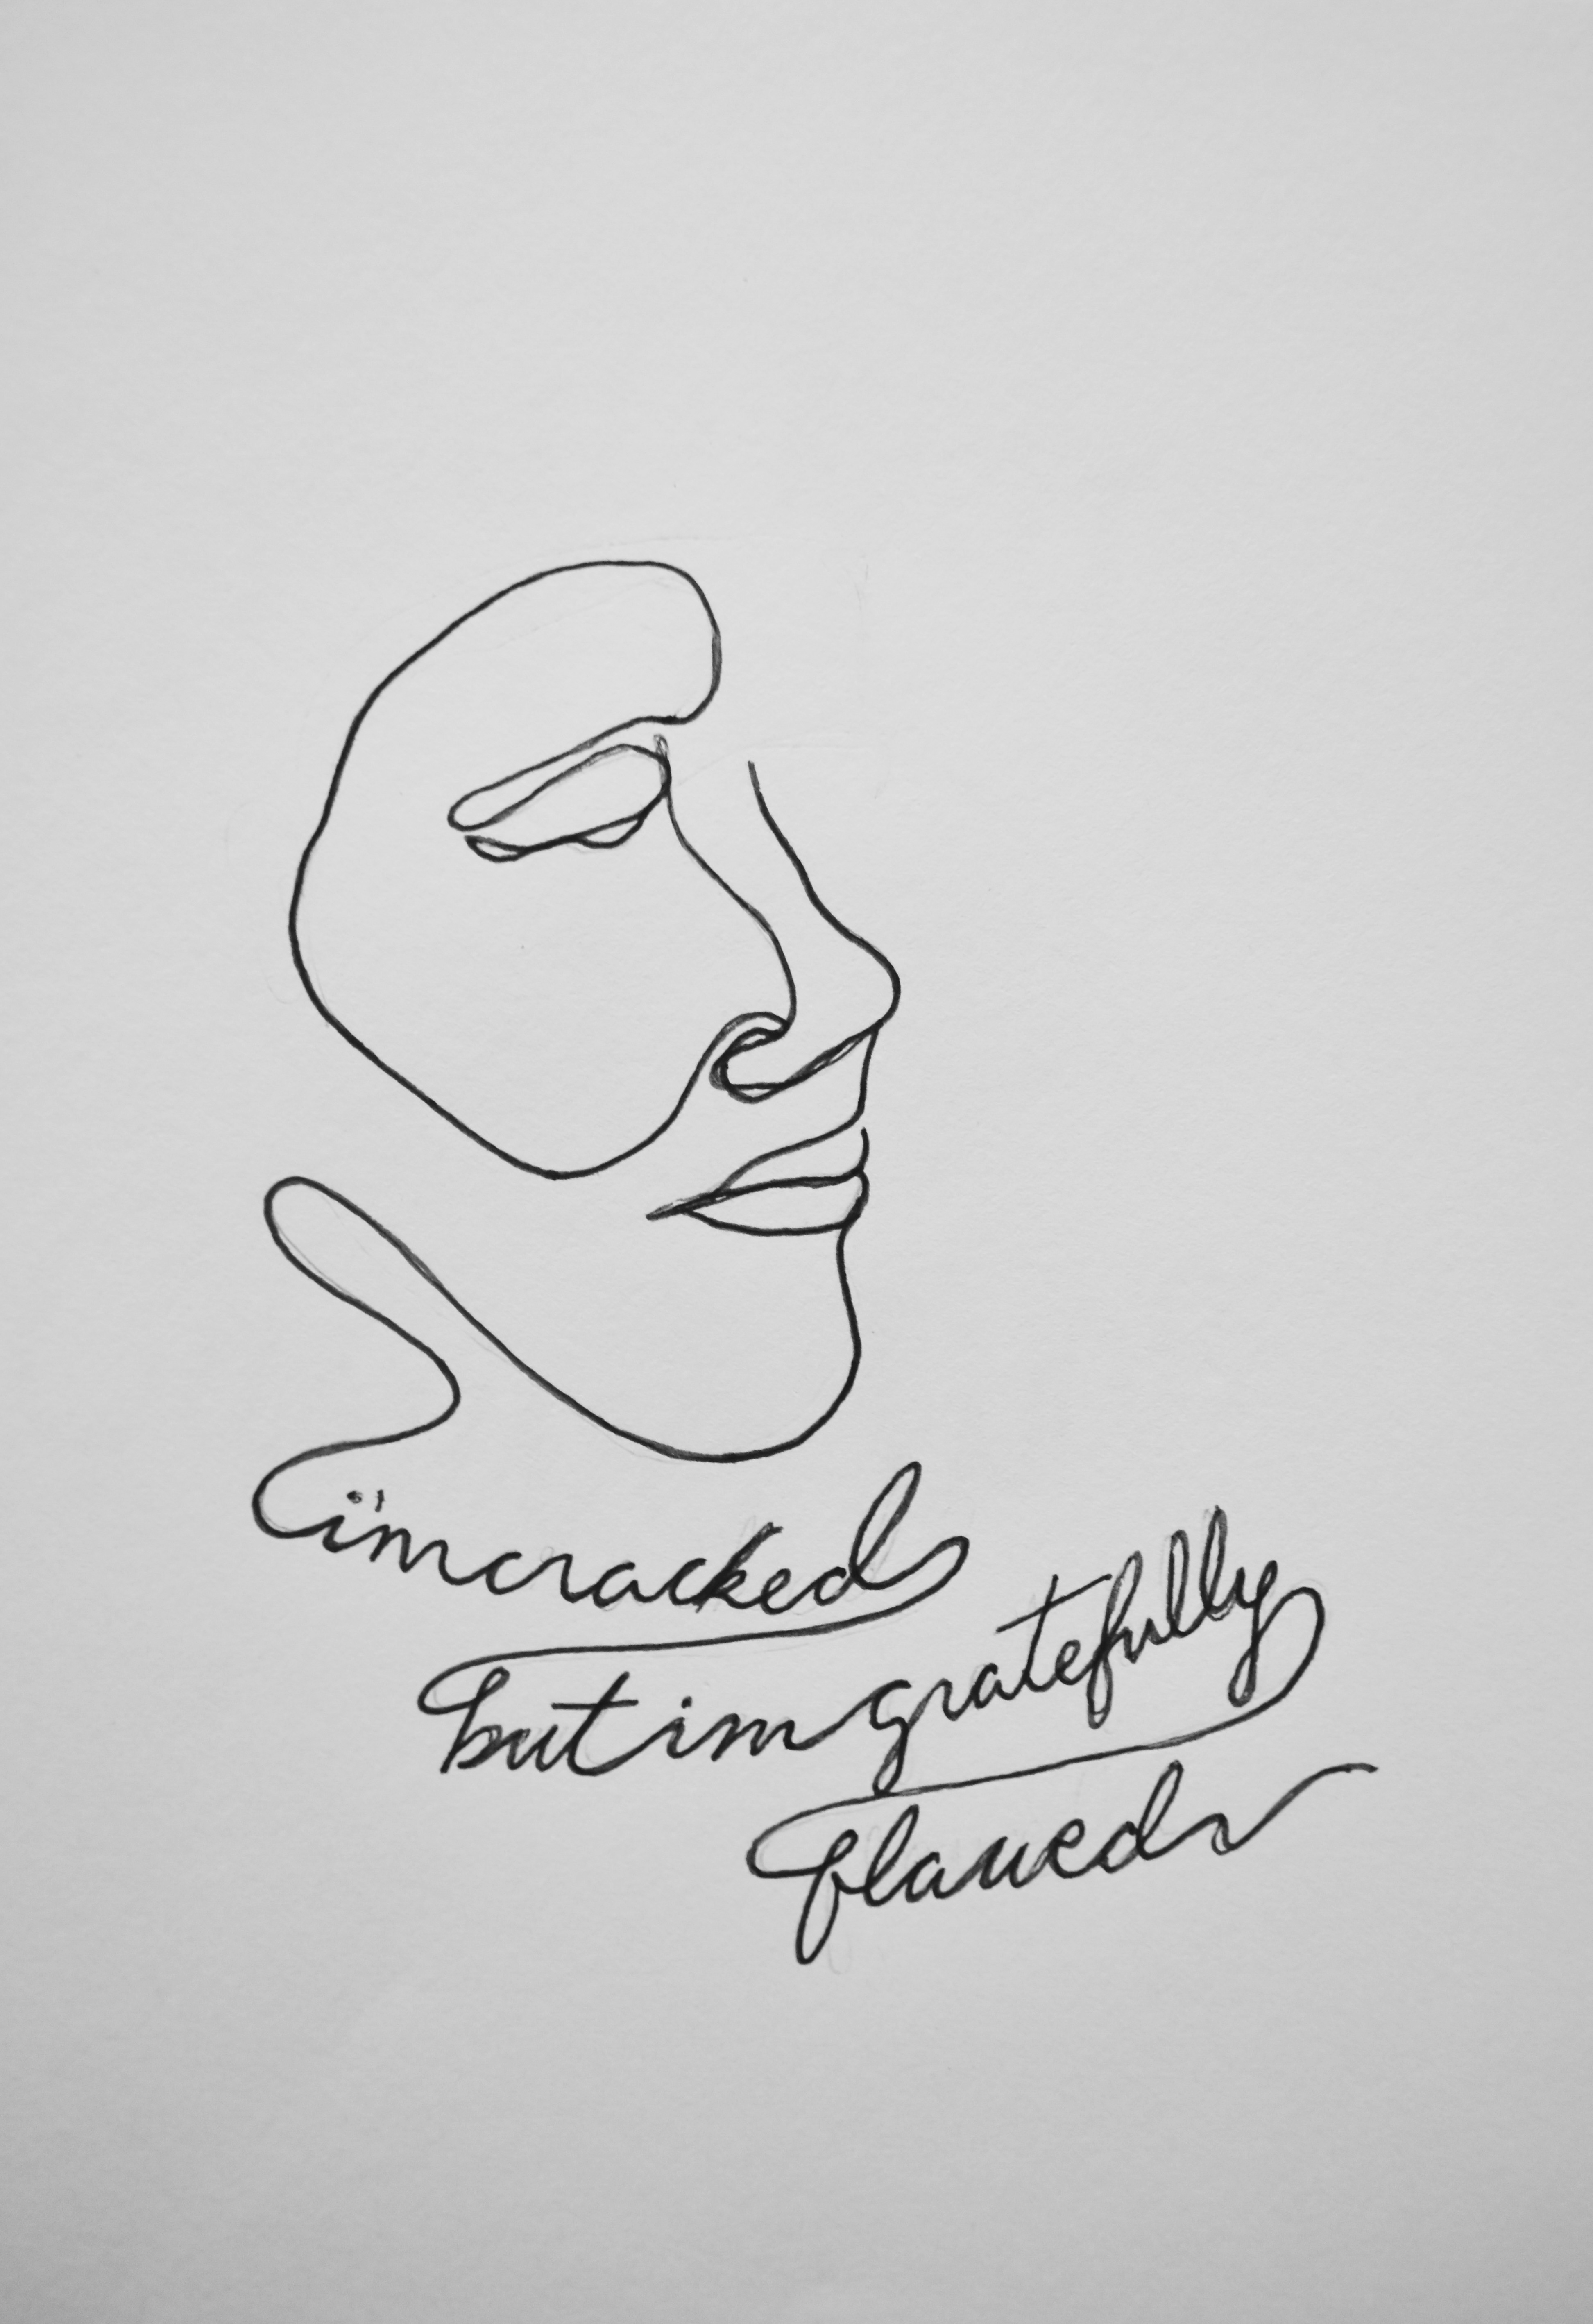 i'm cracked
but im gratefully
flawed